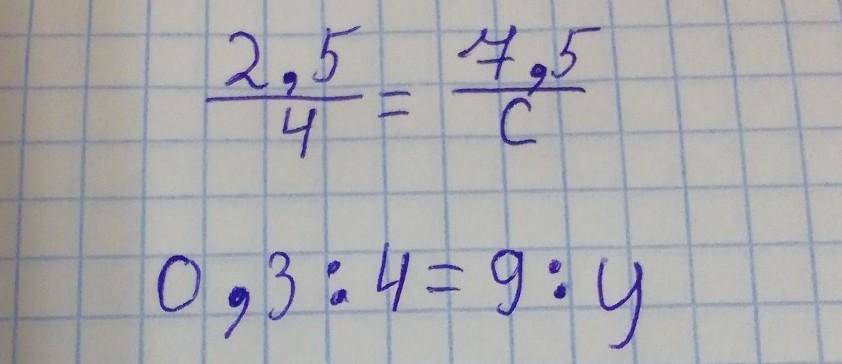 2,5/4 = 7,5/c
0,3 : 4 = 9 : y